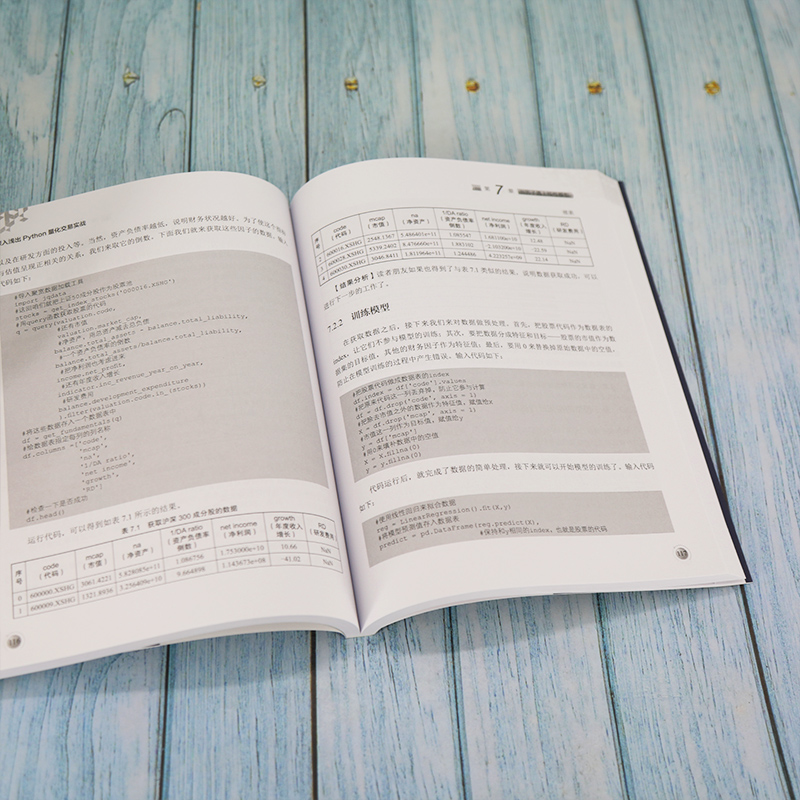 深入浅出 Python 量化交易实战
以及在研发方面的投入等。当然，资产负债率越低，说明财务状况越好，为了使这个指标
与估值呈现正相关的关系，我们来取它的倒数。下面我们就来获取这些因子的数据，输入
代码如下：
#导入聚宽数据加载工具
import jqdata
#达哥咱们就把上证50成分股作为股票池
stocks = get_index_stocks('000016.XSHG')
#用query函数获取股票的代码
q = query(valuation.code,
#还有市值
valuation.market_cap,
#净资产，用总资产减去总负债
balance.total_assets - balance.total_liability,
#一个资产负债率的倒数
balance.total_assets/balance.total_liability,
#把净利润也考虑进来
income.net_profit,
#还有年度收入增长
indicator.inc_revenue_year_on_year,
#研发费用
balance.development_expenditure
).filter(valuation.code.in_(stocks))
#将这些数据存入一个数据表中
df = get_fundamentals(q)
#给数据表指定每列的列名称
df.columns = ['code',
'mcap',
'na',
'1/DA ratio',
'net income',
'growth',
'RD']
#检查一下是否成功
df.head()
运行代码，可以得到如表 7.1 所示的结果。
表 7.1 获取沪深 300 成分股的数据
序号 code（代码） mcap（市值） na（净资产） 1/DA ratio（资产负债率倒数） net income（净利润） growth（年度收入增长） RD（研发费用）
0 600000.XSHG 3061.4221 5.828085e+11 1.086756 1.753000e+10 10.66 NaN
1 600009.XSHG 1321.8936 3.256409e+10 9.664898 1.145673e+08 -41.02 NaN
第 7 章
续表
序号 code（代码） mcap（市值） na（净资产） 1/DA ratio（资产负债率倒数） net income（净利润） growth（年度收入增长） RD（研发费用）
2 600016.XSHG 2548.1367 5.486401e+11 1.083547 12.48 NaN
3 600028.XSHG 5339.2402 8.476660e+11 1.885102 -22.59 NaN
4 600030.XSHG 3046.8411 1.811968e+11 1.244466 22.14 NaN
【结果分析】读者朋友如果也得到了与表 7.1 类似的结果，说明数据获取成功，可以
进行下一步的工作了。
7.2.2 训练模型
在获取数据之后，接下来我们来对数据做预处理。首先，把股票代码作为数据表的
index，让它们不参与模型的训练；其次，要把数据分成特征和目标——股票的市值作为数
据集的目标值，其他的财务因子作为特征值；最后，要用 0 来替换掉原始数据中的空值，
防止在模型训练的过程中产生错误。输入代码如下：
#把股票代码做成数据表的index
df.index = df['code'].values
#把原来代码这一列去弃掉，防止它参与计算
df = df.drop('code', axis = 1)
#把除去市值之外的数据作为特征值，赋值给X
X = df.drop('mcap', axis = 1)
#市值这一列作为目标值，赋值给y
y = df['mcap']
#用0来填补数据中的空值
X = X.fillna(0)
y = y.fillna(0)
代码运行后，就完成了数据的简单处理。接下来就可以开始模型的训练了。输入代码
如下：
#使用线性回归来拟合数据
reg = LinearRegression().fit(X,y)
#将模型预测值存入数据表
predict = pd.DataFrame(reg.predict(X),
#保持和y相同的index，也就是股票的代码
117